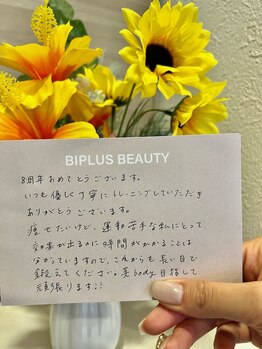 BIPLUS BEAUTY
8周年おめでとうございます。
いつも優しく丁寧にトレーニングしていただき
ありがとうございます。
痩せたいけど、運動苦手な私にとって、
効果が出るのに時間がかかることは
分かっていますので、これからも長い目で
鍛えてください。美body目指して
頑張ります!!